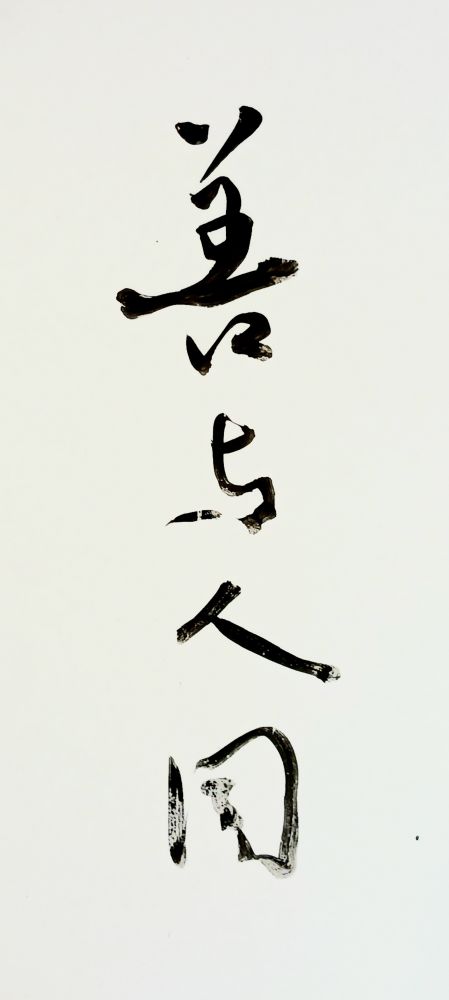 善与人同